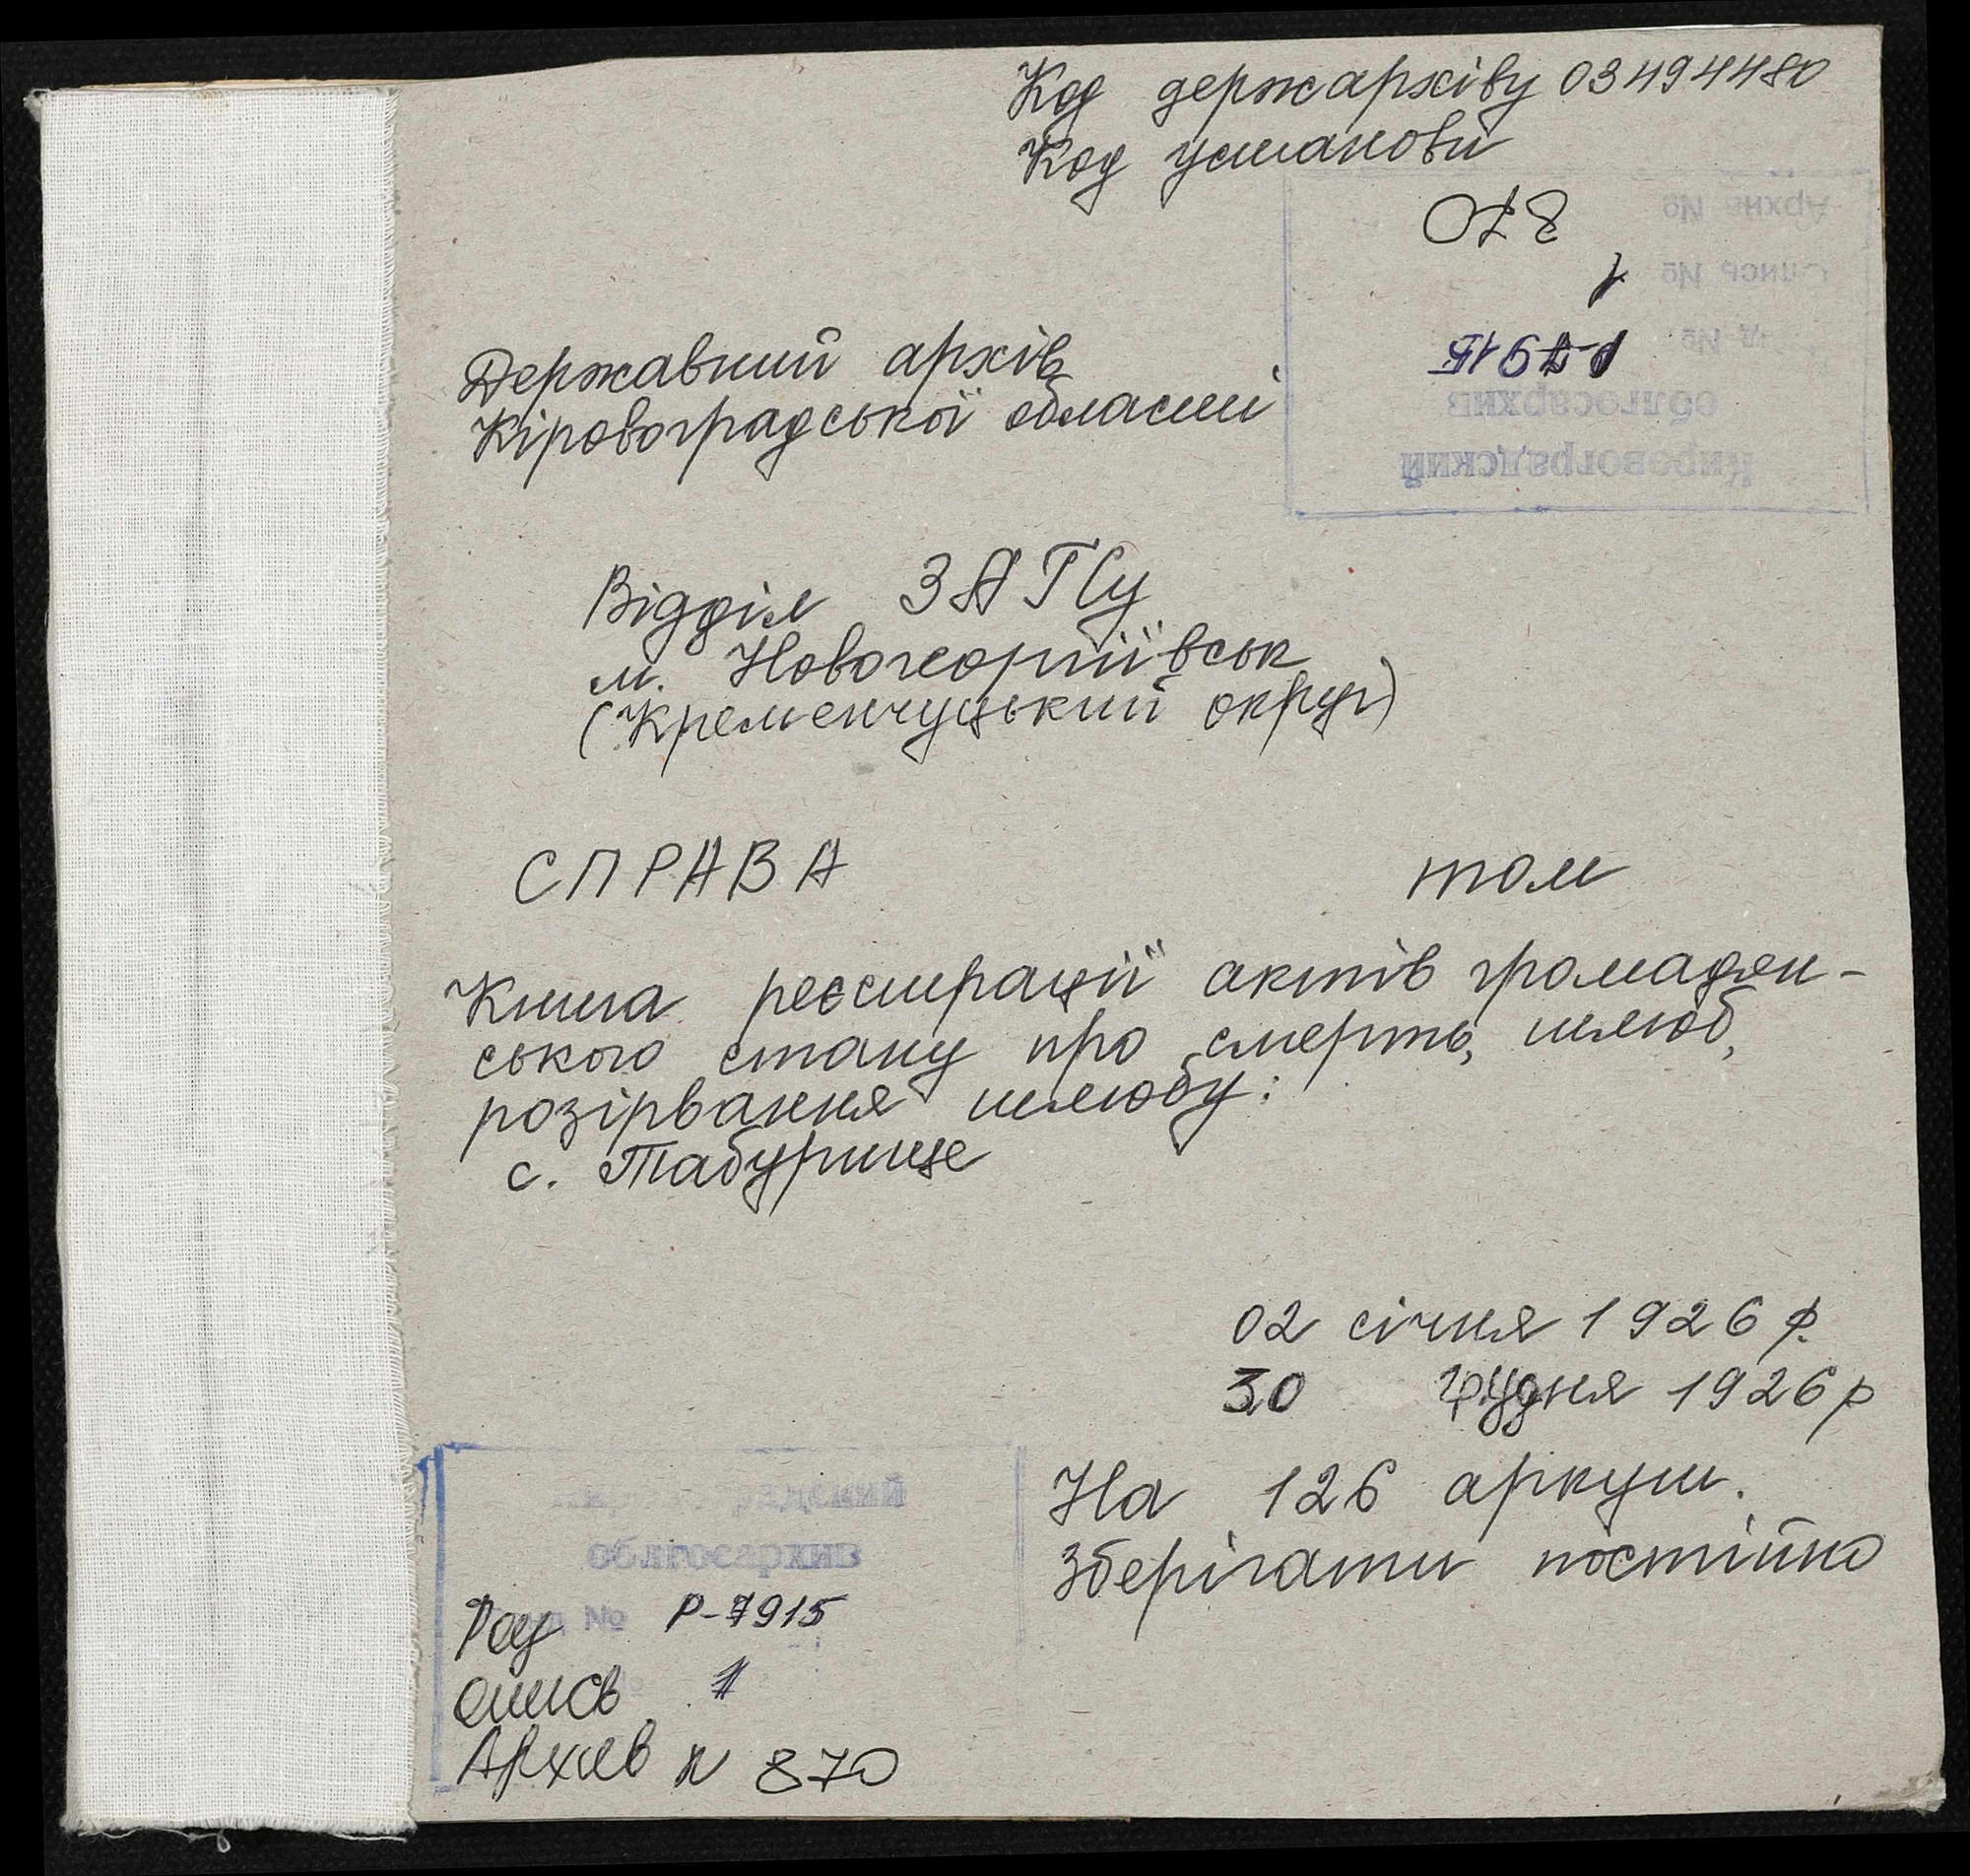 Код держархіву 03494480
Код установи
Архив № 870
Опись № 1
Фонд № Р-7915
облгосархив
Кировоградский
Державний архів
Кіровоградської області
Відділ ЗАГСу
м. Новогеоргіївськ
(Кременчуцький округ)
СПРАВА том
Книга реєстрації актів громадян-
ського стану про смерть, шлюб,
розірвання шлюбу:
с. Табурище
02 січня 1926 р.
30 грудня 1926 р
На 126 аркуш.
Зберігати постійно
Кировоградский
облгосархив
№ Р-7915
опись 1
Архив N 870